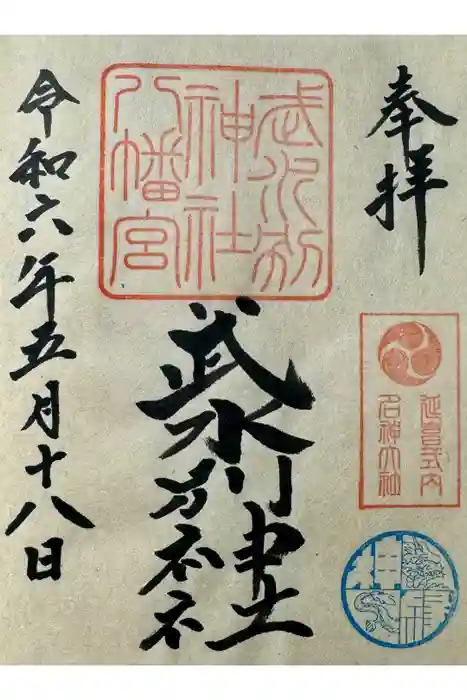 奉拝
延喜式内
名神大社
武水別
神社
八幡宮
武水別神社
令和六年五月十八日